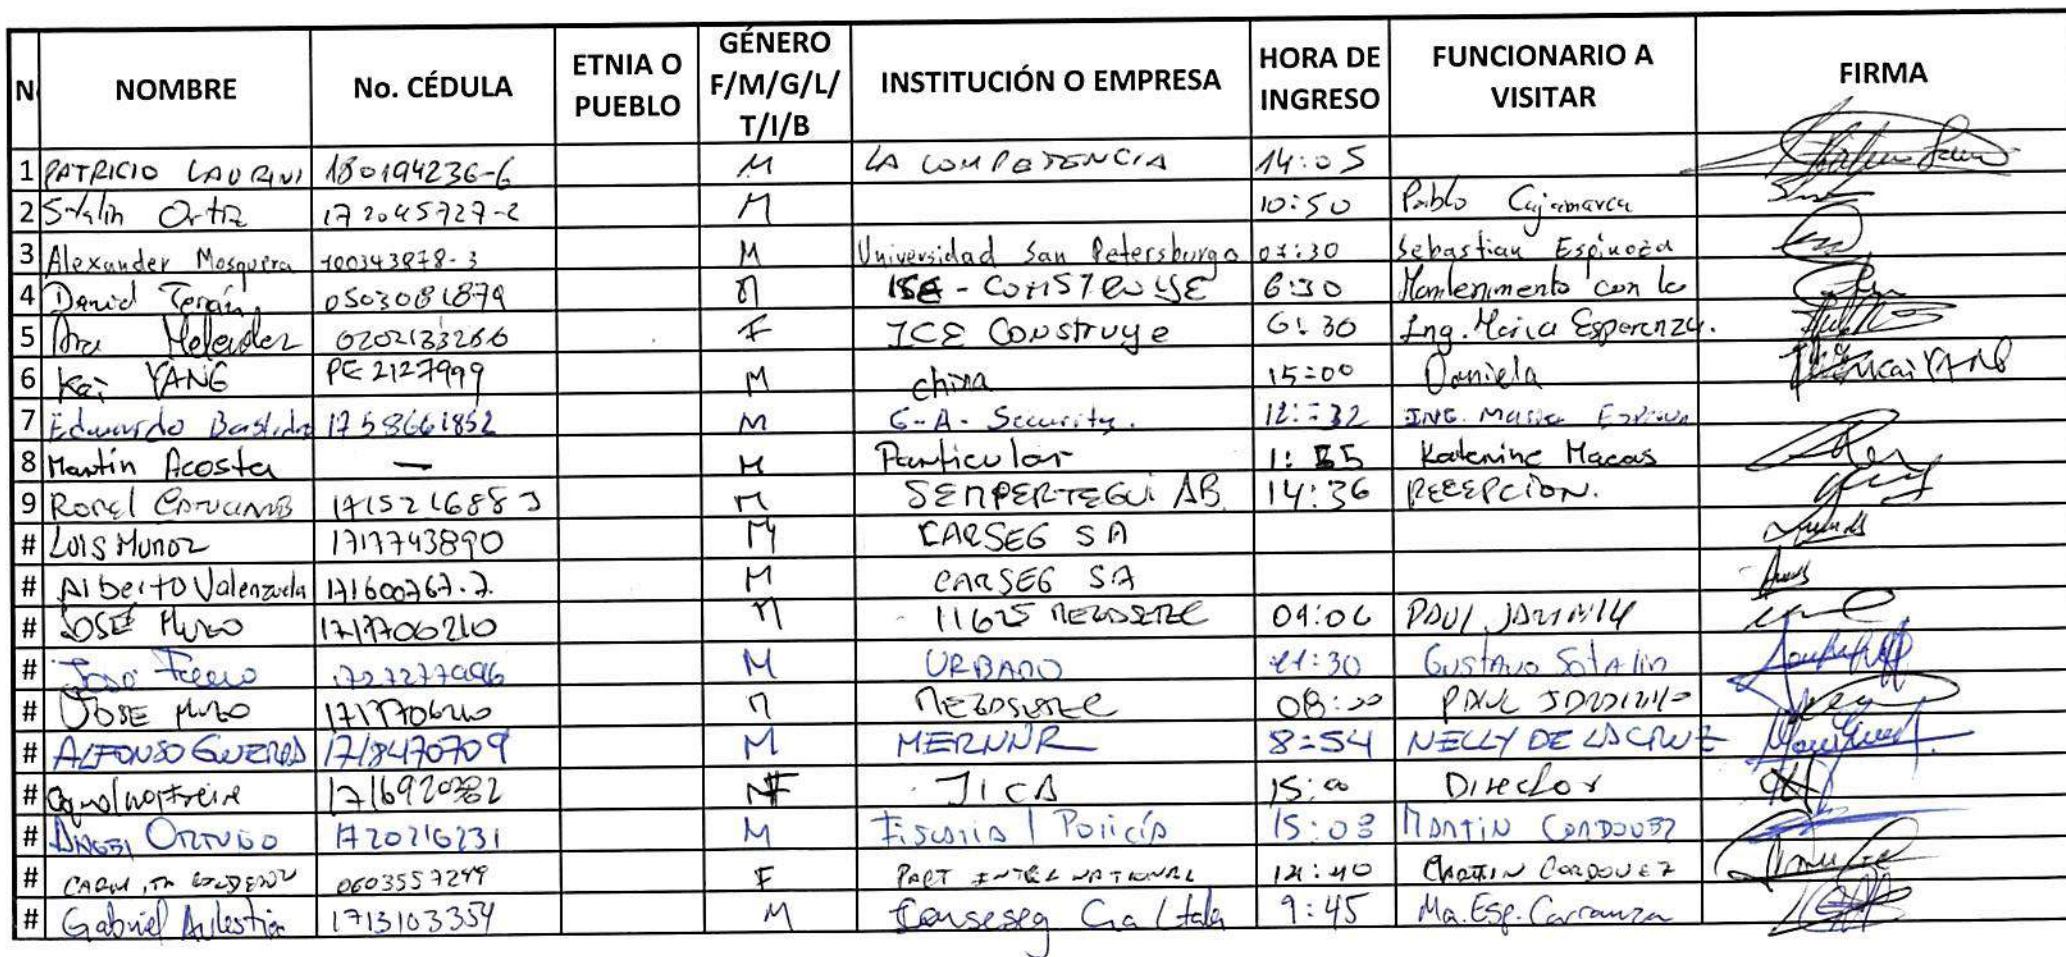 N NOMBRE No. CÉDULA ETNIA O PUEBLO GÉNERO F/M/G/L/T/I/B INSTITUCIÓN O EMPRESA HORA DE INGRESO FUNCIONARIO A VISITAR FIRMA
1 PATRICIO 180194236-6 M LA COMPETENCIA 14:05
2 Stalin Ortiz 172045727-2 M 10:50 Pablo Cajamarca
3 Alexander Mosquera 100343878-3 M Universidad San Petersburgo 07:30 Sebastian Espinoza
4 David Terán 0503081879 M - CONSTRUYE 6:30 Mantenimento con la
5 Ana Melendez 0202133266 F ICE Construye 6:30 Ing. Maria Esperanza.
6 Kai YANG PE 2127999 M china 15:00 Daniela
7 Eduardo Bastidas 1758661852 M G-A- Security. 12:32 ING. Maria
8 Martín Acosta — M Particular 1:55 Katerine Macas
9 1715216883 M SEMPERTEGUI AB. 14:36 RECEPCION.
# LUIS MUÑOZ 1717743890 M CARSEG SA
# Alberto Valenzuela 171600767-7. M CARSEG SA
# JOSÉ 1717706210 M 11625 09:06 PAUL
# José 1727277996 M URBANO 11:30 Gustavo
# JOSE M 08:00 PAUL
# ALFONSO GUERRA 1718470709 M MERNNR 8:54 NELLY DE LA CRUZ
# F JICA 15:00 Director
# ANGEL ORTUÑO 1720216231 M Fiscalía / Policía 15:03 MARTIN CORDOVEZ
# 0603557249 F PART INTERNATIONAL 12:40 MARTIN CORDOVEZ
# Gabriel Aulestia 1713103354 M Conseseg Cia Ltda 9:45 Ma. Esp. Carranza